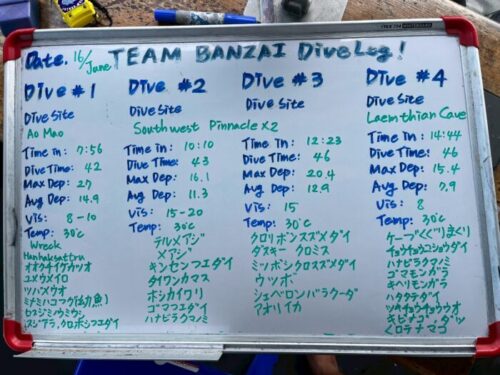 Date. 16/June TEAM BANZAI Dive Log!
Dive #1
Dive Site
Ao Mao
Time in: 7:56
Dive Time: 42
Max Dep: 27
Avg Dep: 14.9
Vis: 8-10
Temp: 30℃
Wreck
オオクチイケカツオ
ユメウメイロ
ツバメウオ
ミナミハコフグ(幼魚)
スジアラ, クロホシフエダイ
Dive #2
Dive Site
Southwest Pinnacle x2
Time in: 10:10
Dive Time: 43
Max Dep: 16.1
Avg Dep: 11.3
Vis: 15-20
Temp: 30℃
テルメアジ
メアジ
キンセンフエダイ
タイワンカマス
ホシカイワリ
ゴマフエダイ
ハナビラクマノミ
Dive #3
Dive Site
Time in: 12:23
Dive Time: 46
Max Dep: 20.4
Avg Dep: 12.9
Vis: 15
Temp: 30℃
クロリボンスズメダイ
ダスキー クロミス
ミツボシクロスズメダイ
ウツボ
シェベロンバラクーダ
アオリイカ
Dive #4
Dive Site
Laem thian Cave
Time in: 14:44
Dive Time: 46
Max Dep: 15.4
Avg Dep: 7.9
Vis: 8
Temp: 30℃
ケーブくぐりまくり
チョウチョウコショウダイ
ハナビラクマノミ
ゴマモンガラ
キヘリモンガラ
ハタタテダイ
キビナゴ, ダツ
クロテナマコ